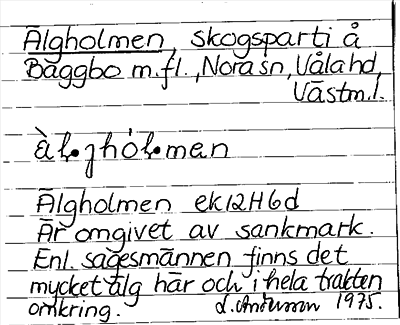 Älgholmen, skogsparti å
Baggbo m.fl., Nora sn, Våla hd,
Västm.l.
àl·jhòl·man
Älgholmen ek12H6d
Är omgivet av sankmark.
Enl. sagesmännen finns det
mycket älg här och i hela trakten
omkring. L. Andersson 1975.